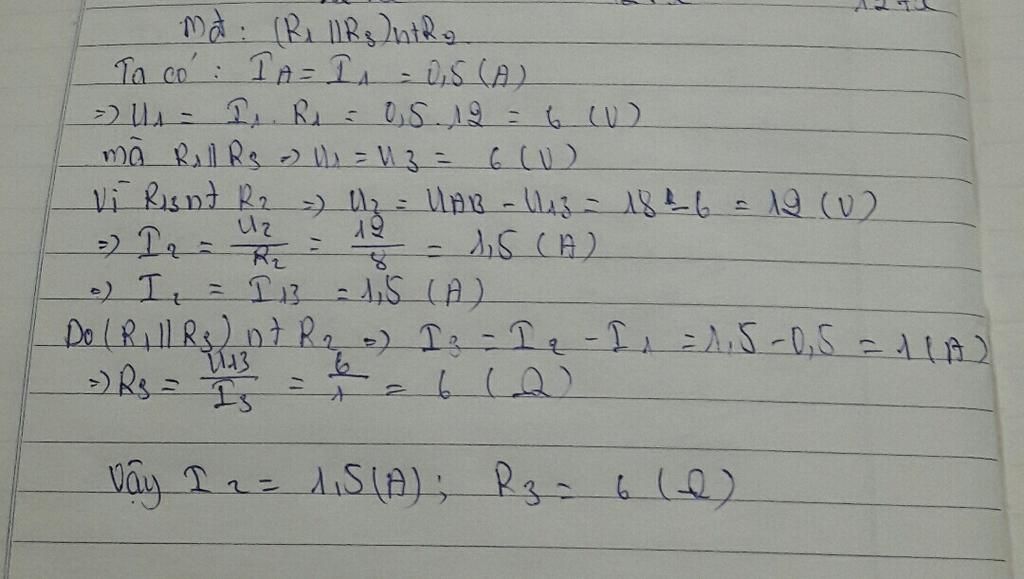 mà : (R1 // R3) nt R2
Ta có : IA = I1 = 0,5 (A)
=) U1 = I1. R1 = 0,5. 12 = 6 (V)
mà R1 // R3 => U1 = U3 = 6 (V)
Vì R13 nt R2 => U2 = UAB - U13 = 18 - 6 = 12 (V)
=) I2 = U2/R2 = 12/8 = 1,5 (A)
=) I2 = I13 = 1,5 (A)
Do (R1 // R3) nt R2 =) I3 = I2 - I1 = 1,5 - 0,5 = 1 (A)
=) R3 = U13/I3 = 6/1 = 6 (Ω)
Vậy I2 = 1,5 (A) ; R3 = 6 (Ω)